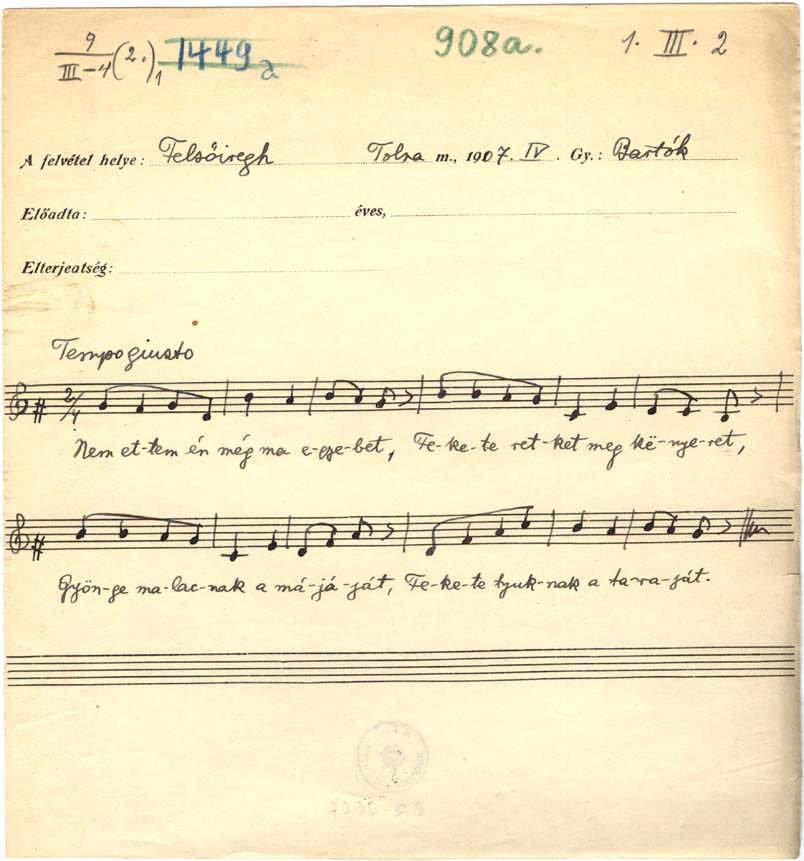 9
III-4 (2.)1 1449a 908a. 1. III. 2
A felvétel helye: Felsőiregh Tolna m., 1907. IV. Gy.: Bartók
Előadta: éves,
Elterjedtség:
Tempo giusto
2/4
Nem et-tem én még ma e-gye-bet, Fe-ke-te ret-ket meg kë-nye-ret,
Gyön-ge ma-lac-nak a má-já-ját, Fe-ke-te tyuk-nak a ta-ra-ját.